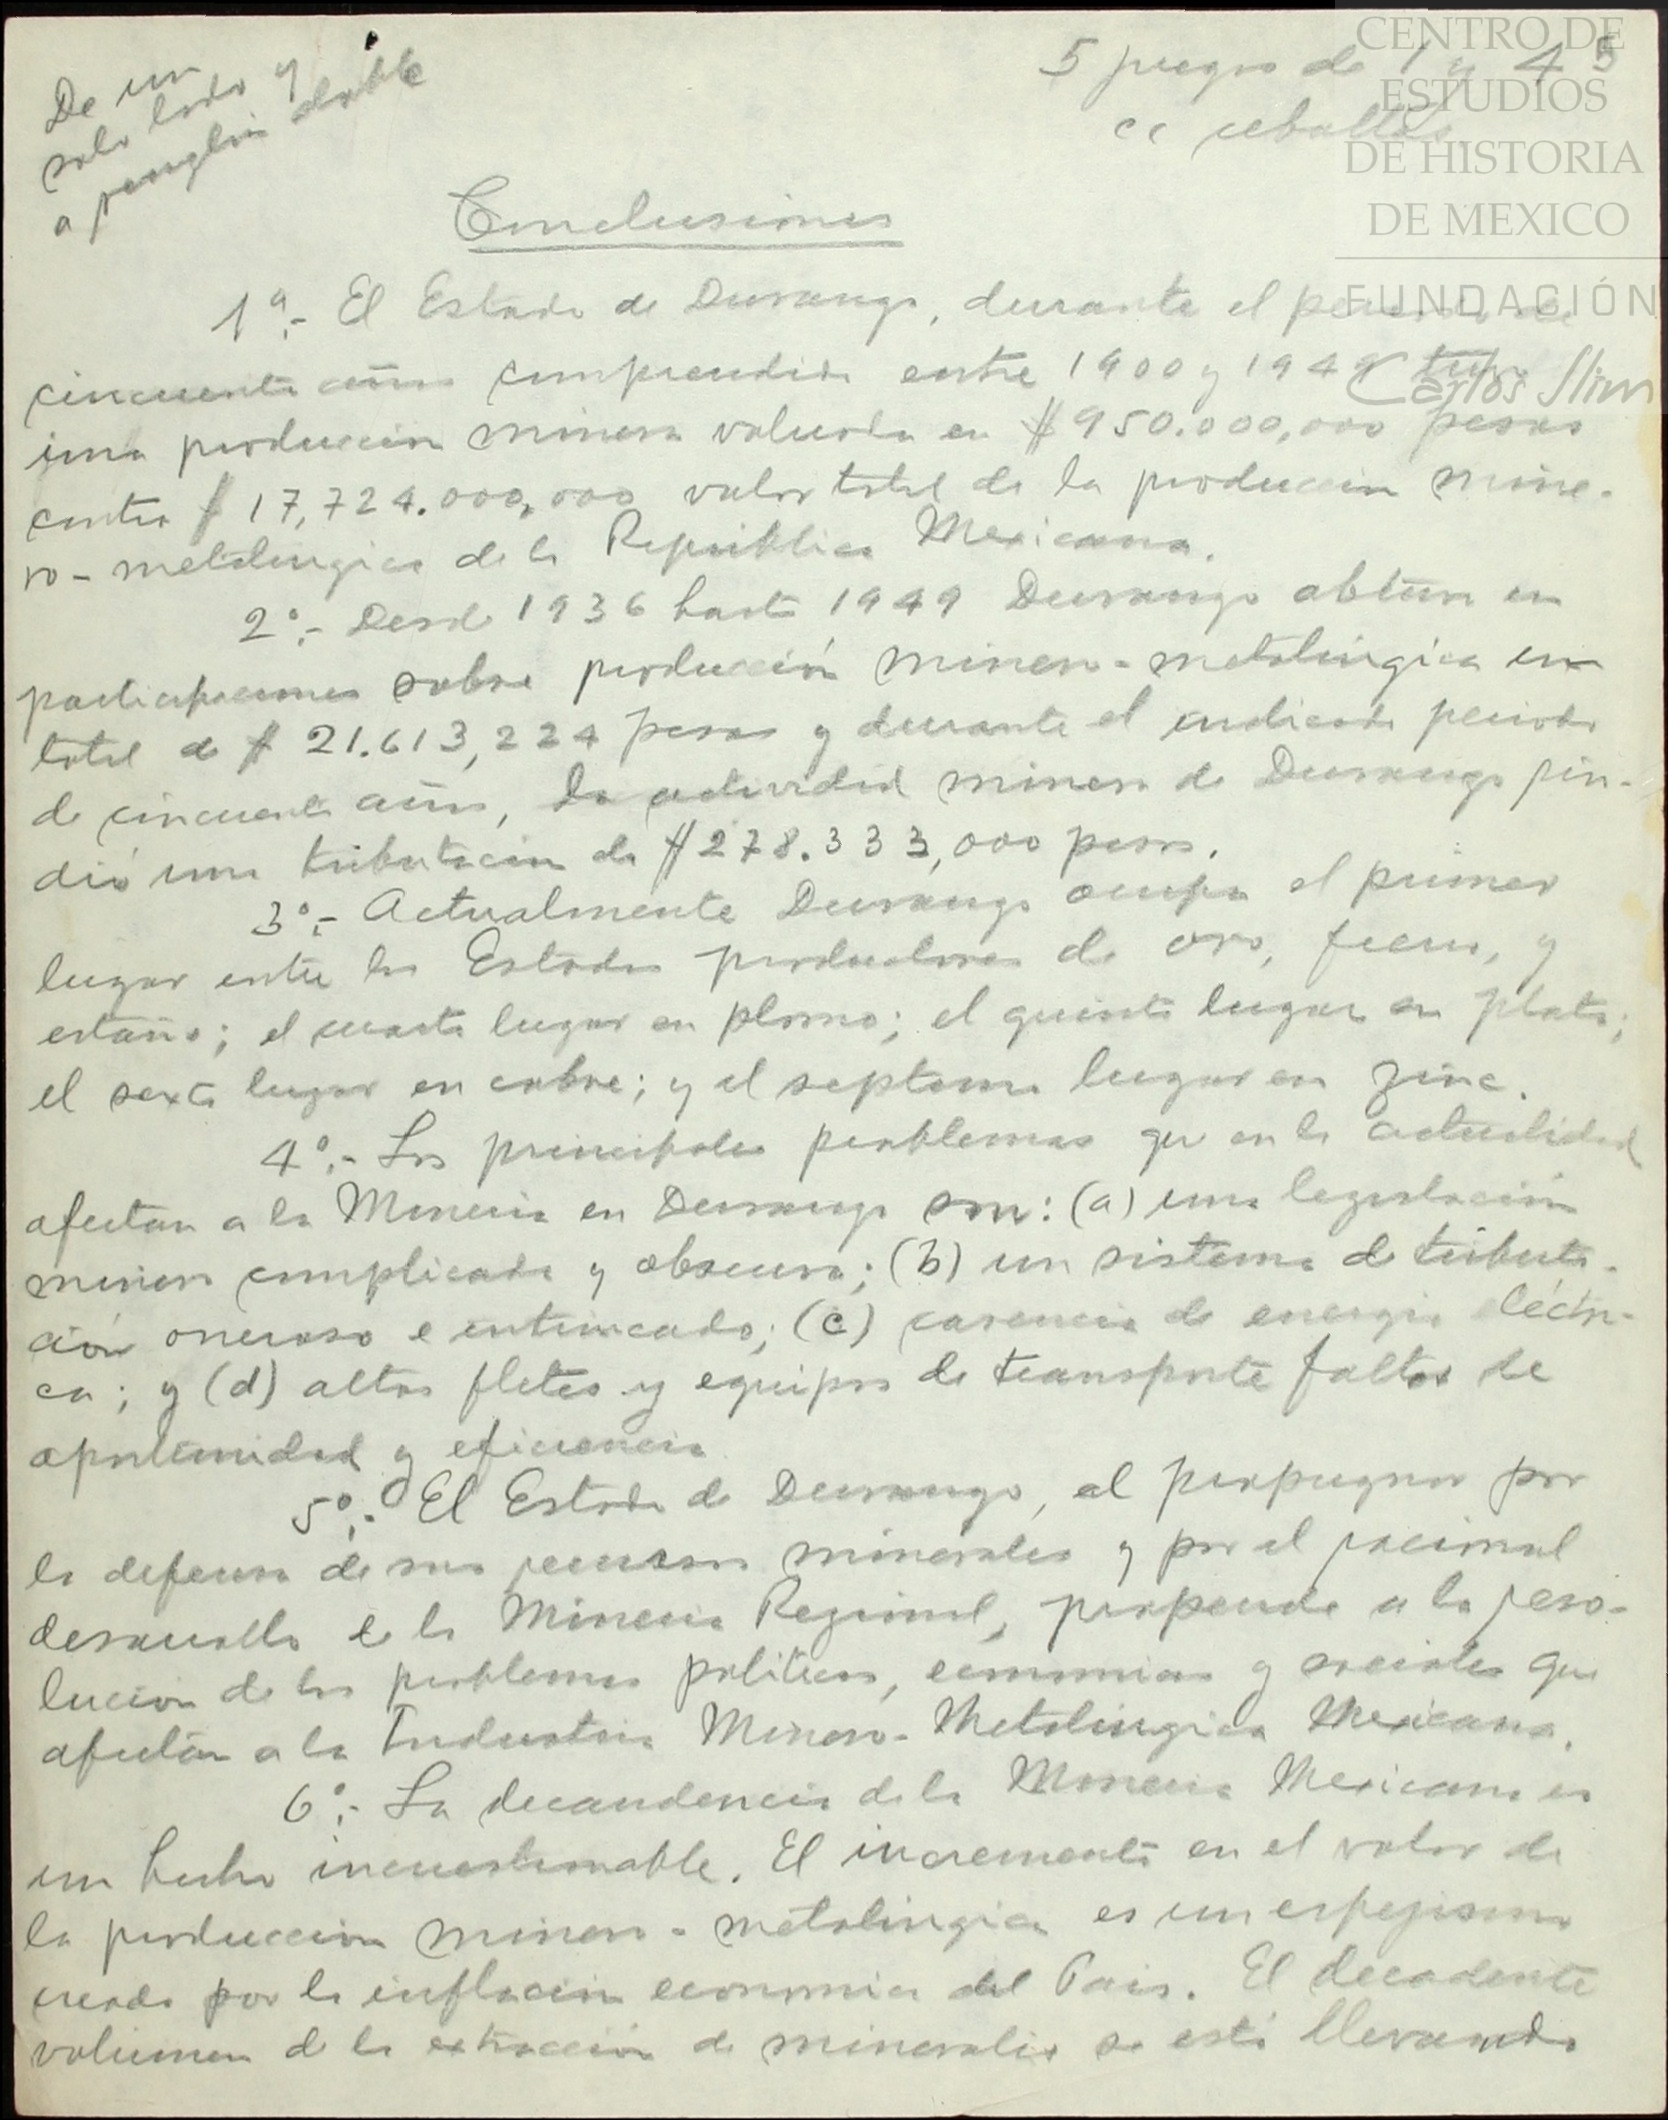 De un
solo lado y
a renglón doble
5 juegos de 1 y 4 5
cc ceballos
CENTRO DE
ESTUDIOS
DE HISTORIA
DE MEXICO
FUNDACIÓN
Carlos Slim
Conclusiones
1ª.- El Estado de Durango, durante el periodo de
cincuenta años comprendido entre 1900 y 1949 tubo
una produccion minera valuada en $950.000,000 pesos
contra $17,724.000,000 valor total de la produccion mine-
ro-metalurgica de la República Mexicana.
2°.- Desde 1936 hasta 1949 Durango obtuvo en
participaciones sobre producción minero-metalúrgica un
total de $21.613,224 pesos y durante el indicado periodo
de cincuenta años, la actividad minera de Durango rin-
dió una tributacion de $278.333,000 pesos.
3°.- Actualmente Durango ocupa el primer
lugar entre los Estados productores de oro, fierro, y
estaño; el cuarto lugar en plomo; el quinto lugar en plata;
el sexto lugar en cobre; y el septimo lugar en zinc.
4°.- Los principales problemas que en la actualidad
afectan a la Mineria en Durango son: (a) una legislación
minera complicada y obscura; (b) un sistema de tributa-
ción oneroso e intrincado; (c) carencia de energia eléctri-
ca; y (d) altos fletes y equipos de transporte faltos de
oportunidad y eficiencia
5°.- El Estado de Durango, al propugnar por
la defensa de sus recursos minerales y por el racional
desarrollo de la Mineria Regional, propende a la reso-
lución de los problemas politicos, economicos y sociales que
afectan a la Industria Minero-Metalúrgica Mexicana.
6°.- La decandencia de la Mineria Mexicana es
un hecho incuestionable. El incremento en el valor de
la produccion minero-metalúrgica es un espejismo
creado por la inflacion economica del Pais. El decadente
volumen de la extracción de minerales se está llevando